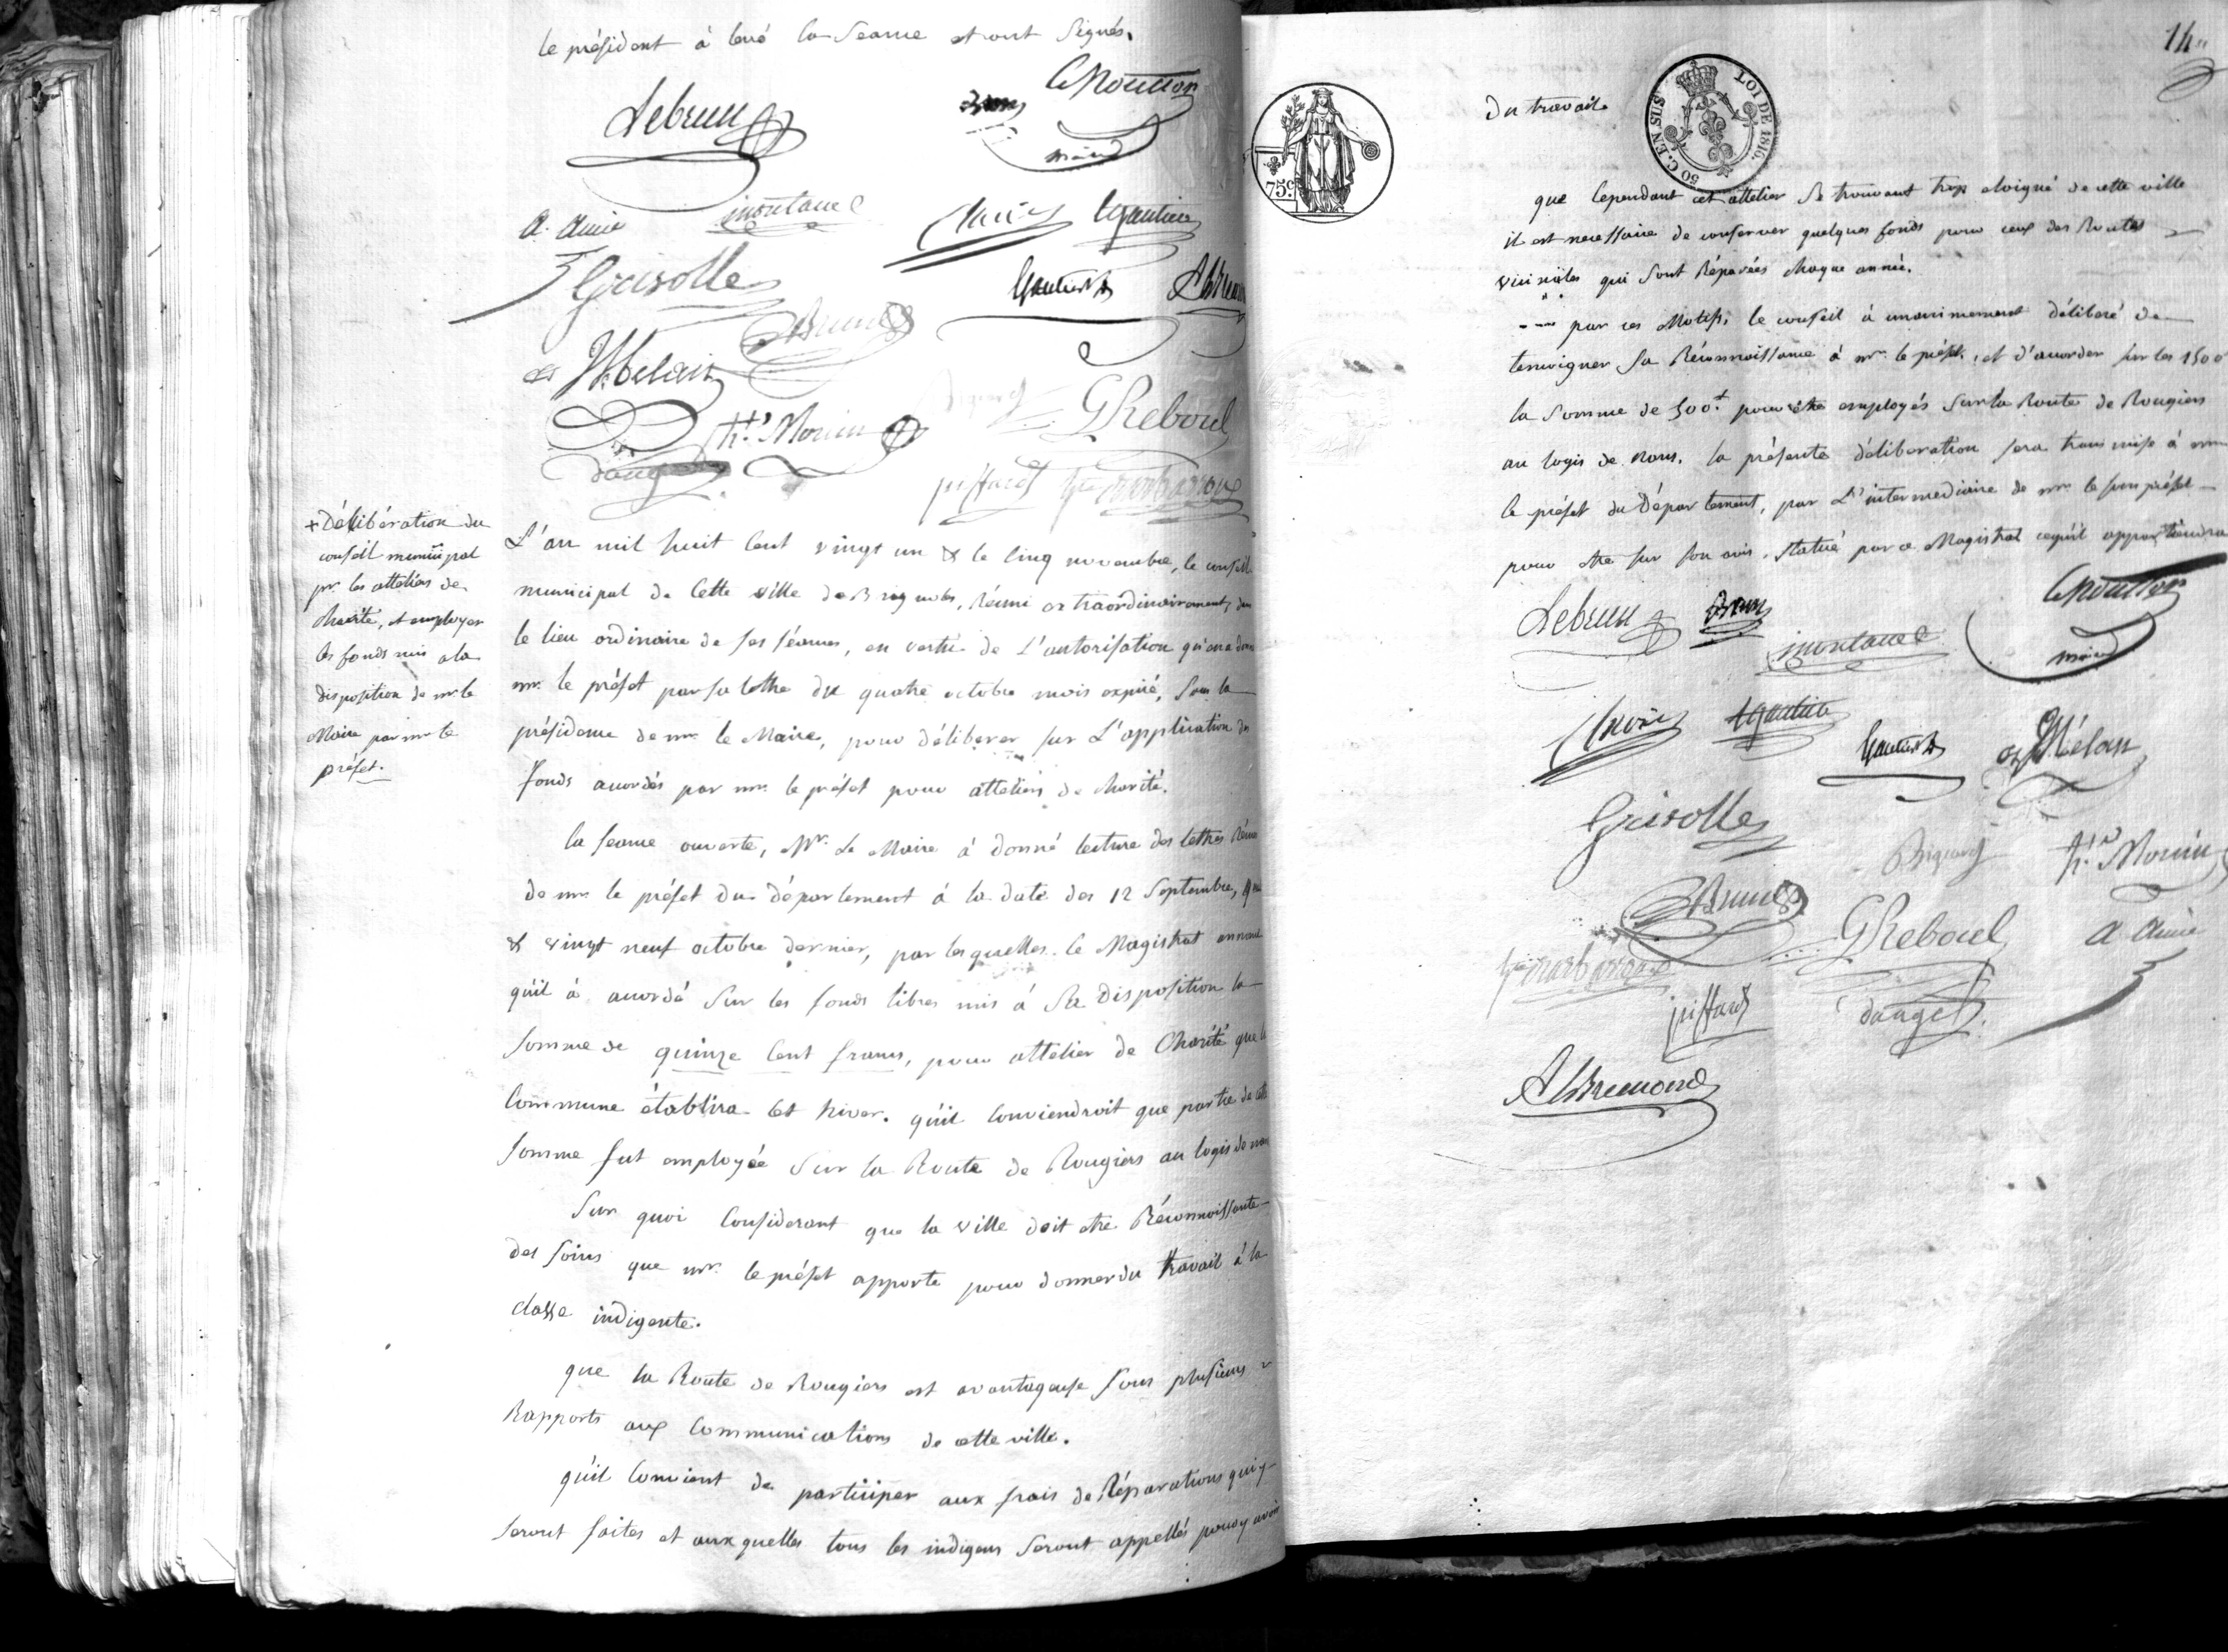 le président à levé la séance et ont signés.
Lebrun
maire
A. Amic
montanel
Gautier
Grisolle
Gautier
Brun
Mélan
h.te Monin
G Reboul
jiffard
+ Délibération du
conseil municipal
pr. les atteliers de
charité, et employer
les fonds mis a la
disposition de mr. le
Maire par mr. le
préfet.
L'an mil huit cent vingt un & le cinq novembre, le conseil
municipal de cette ville de Brignoles, réuni extraordinairement, dans
le lieu ordinaire de ses séances, en vertu de L'autorisation qu'en a donné
mr. le préfet par sa lettre du quatre octobre mois expiré, sous la
présidence de mr. le Maire, pour délibérer sur L'application des
fonds accordés par mr. le préfet pour atteliers de charité.
la séance ouverte, Mr. Le Maire à donné lecture des lettres
de mr. le préfet du département à la date des 12 Septembre, 4
& vingt neuf octobre dernier, par lesquelles le Magistrat annonce
qu'il à accordé sur les fonds libres mis à sa disposition la
somme de quinze cent francs, pour attelier de Charité que la
Commune établira cet hiver. qu'il conviendroit que partie de cette
somme fut employée sur la Route de Rougiers au logis de nans
Sur quoi Considerant que la ville doit etre Réconnoissante
des soins que mr. le préfet apporte pour donner du travail à la
classe indigente.
que la Route de Rougiers est avantageuse sous plusieurs
Rapports aux Communications de cette ville.
qu'il convient de participer aux frais de Réparations qui y
seront faites et aux quelles tous les indigens seront appellés pour y avoir
14
75c.
50 C. EN SUS
LOI DE 1816.
du travail
que cependant cet attelier se trouvant trop eloigné de cette ville
il est necessaire de conserver quelques fonds pour ceux des Routes
viciniales qui sont Réparées chaque année.
par ces Motifs, le conseil à unanimement délibéré de
temoigner sa Réconnoissance à mr. le préfet, et d'accorder sur les 1500
la somme de 500 pour être employés sur la Route de Rougiers
au logis de Nans. la présente délibération sera transmise à mr.
le préfet du Département, par L'intermediaire de mr. le sous préfet
pour etre sur son avis, statué par ce Magistrat cequ'il appartiendra
Lebrun
maire
montanel
Gautier
Gautier
Mélan
Grisolle
h.te Monin
Brun
G Reboul
A Amic
jiffard
dauget
A Bremond